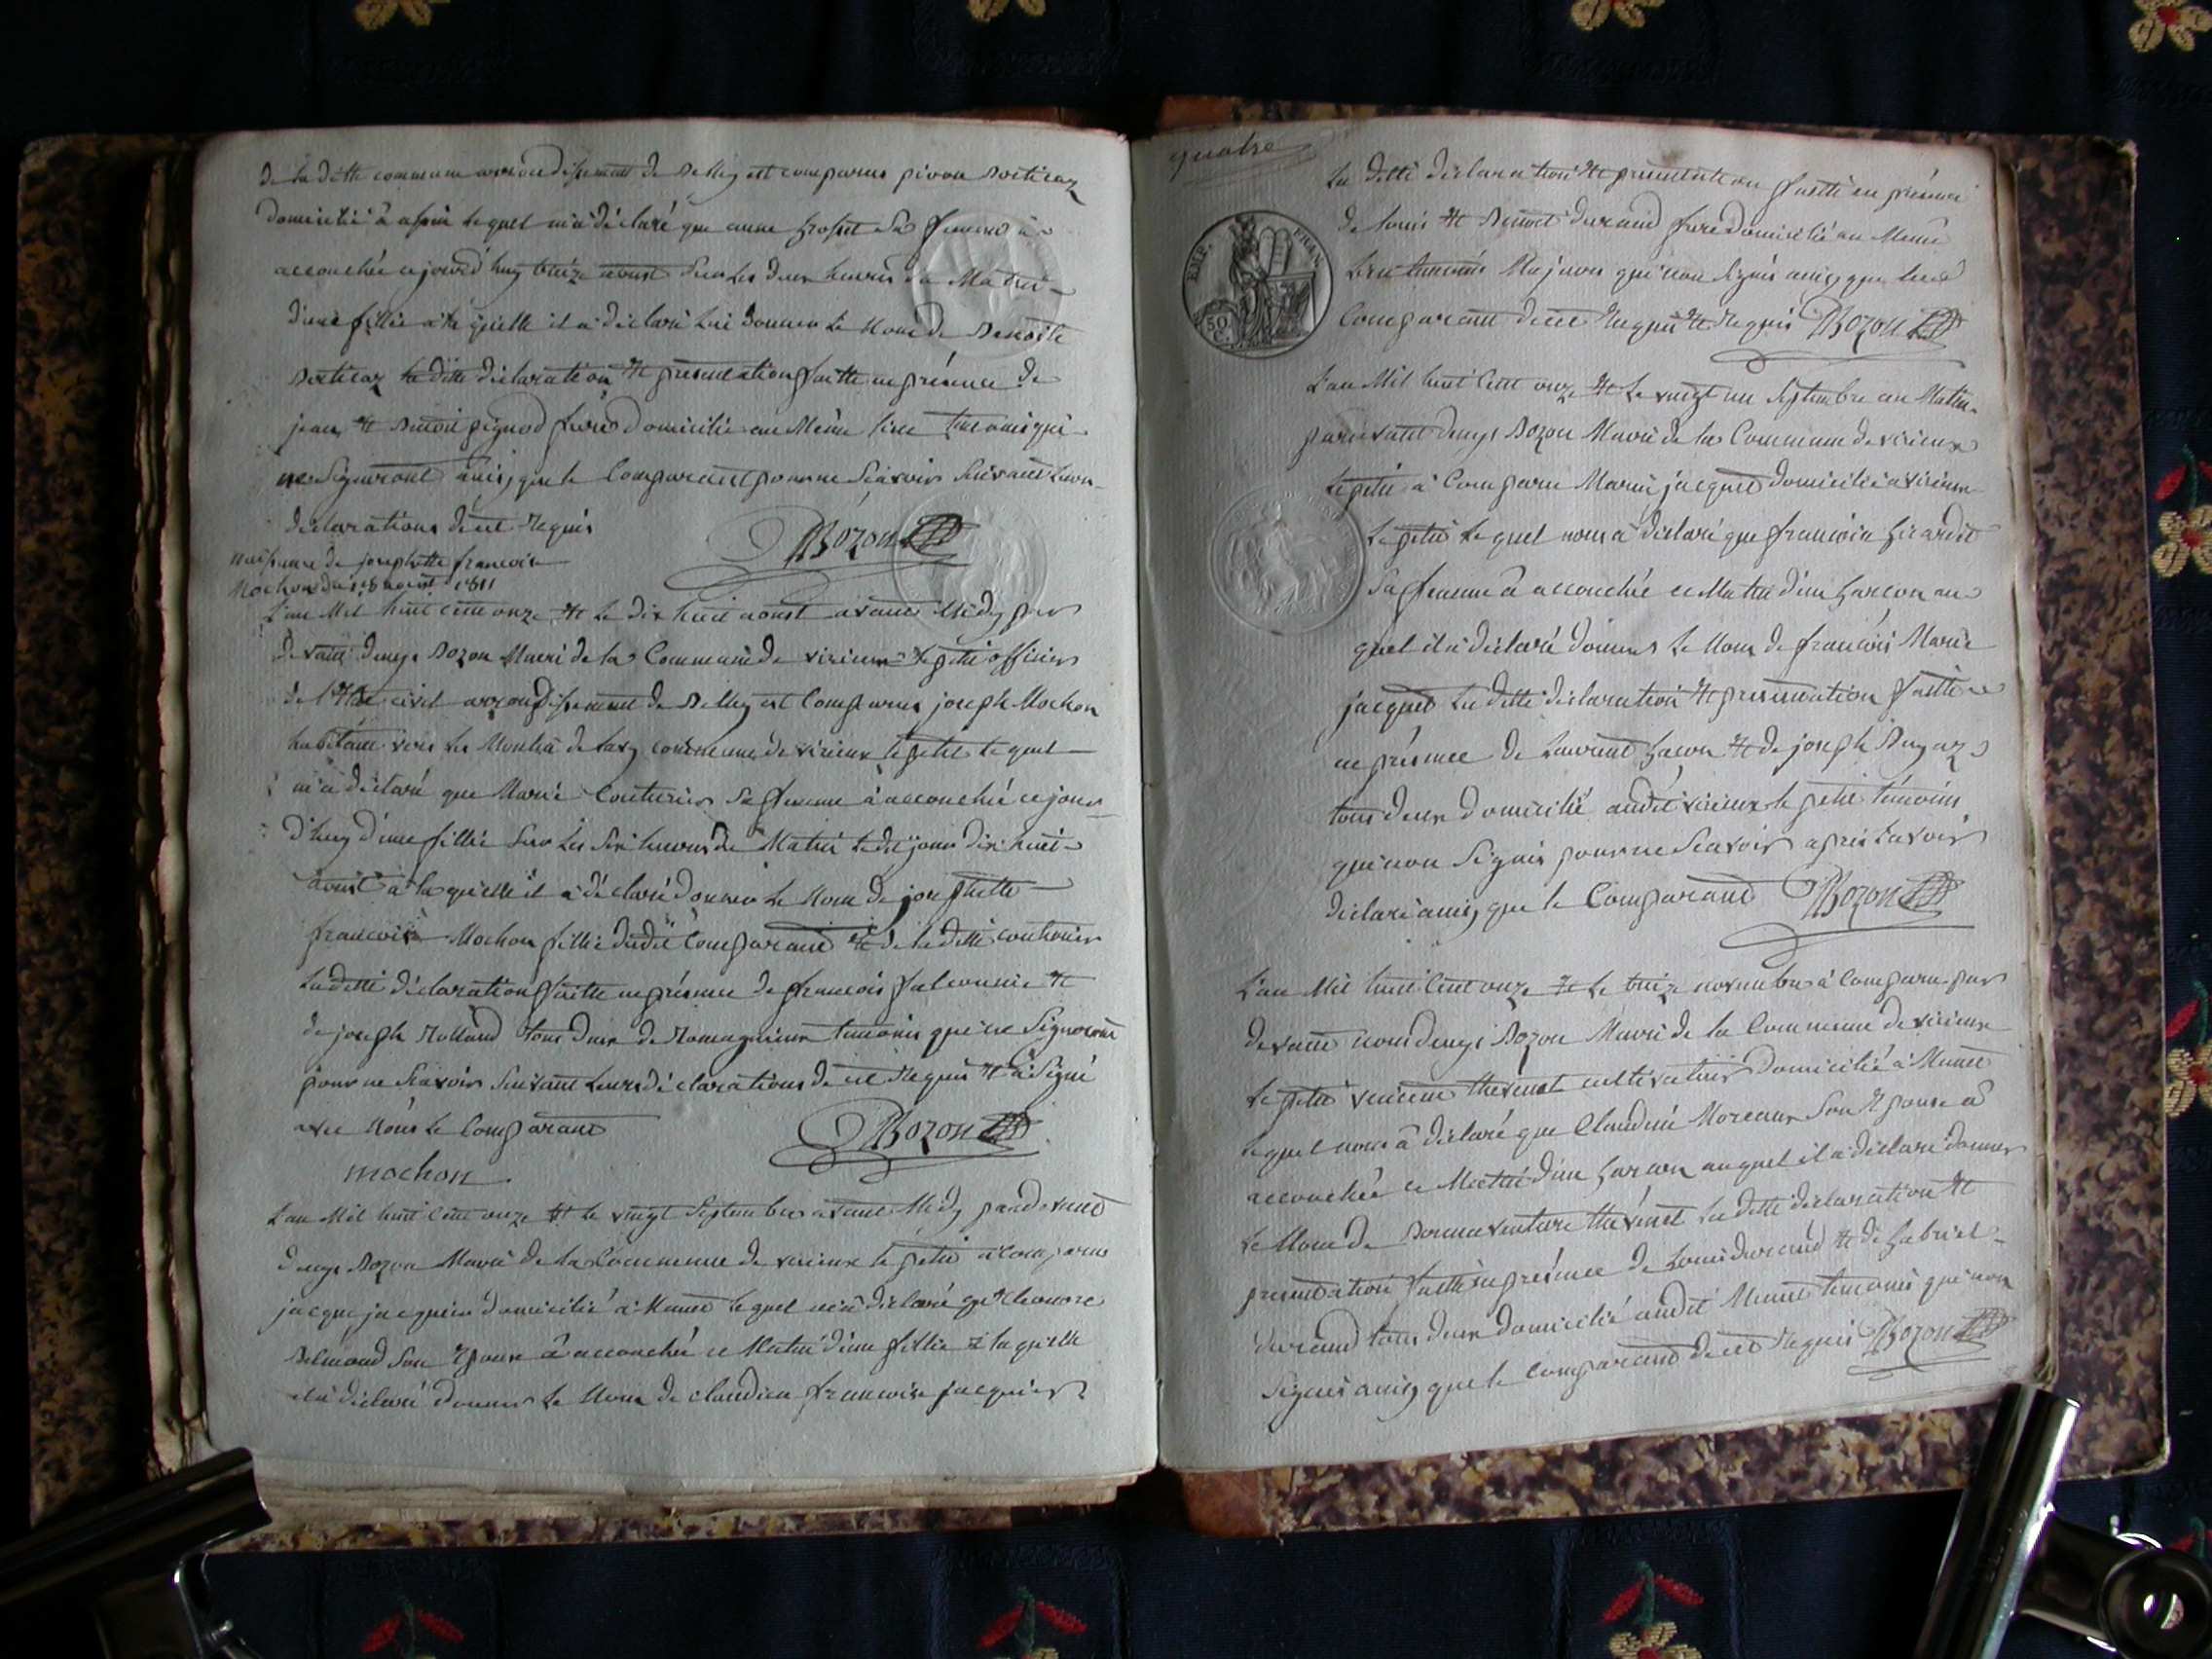 de la ditte commune arrondissement de Belley est comparus pivon Berticaz
domicilié à lequel m'a déclaré que anne grosset sa femme à
accouchée ce jourd'huy treize aoust sur les deux heures du Matin
d'une fillie à la quelle il a déclaré lui donner le Nom de Benoite
Berticaz la ditte déclaration et presentation faitte en présence de
jean et Benoit pignod frère domicilié au Même lieu temoins qui
ne Signeront ainsy que le Comparant pour ne Scavoir Suivant leurs
déclarations de ce Requis
DBozon
Naissance de josephtte francoise
Mochon du 18 agout 1811
L'an Mil huit Cent onze et le dix huit aoust avant Midy par
devant denys Bozon Maire de la Commune de virieux le petit officier
de l'Etat civil arrondissement de Belley est Comparus joseph Mochon
habitant vers les Moulin de commune de virieux le petit le quel
m'a déclaré que Marie Couturier Sa femme à accouchée ce jour
d'huy d'une fillie Sur les Six heures du Matin le dit jour dix huit
aoust à la quelle il a déclaré donner le Nom de josephtte
francoise Mochon fillie du dit Comparant et de la ditte couturier
La ditte déclaration faitte en présence de francois falconnie et
de joseph Rolland tous deux de Romagnieux temoins qui ne Signeront
pour ne Scavoir Suivant leurs déclarations de ce Requis et à Signé
avec Nous le Comparant
DBozon
mochon
L'an Mil huit Cent onze et le vingt Septembre avant Midy pardevant
denys Bozon Maire de la Commune de virieux le petit à comparus
jacque jacquier domicilié à Munet lequel m'a déclaré qu'Eleonore
Belmond Son Epouse à accouchée ce Matin d'une fillie à la quelle
il a déclaré donner le Nom de claudine francoise jacquier
quatre
EMP. FRAN.
50 C.
La ditte déclaration et presentation faitte en présence
de Louis et Benoit durand frere domicilié au Même
Lieu temoins Majeurs qui non Signés ainsy que le
Comparant de ce Requis et Requis DBozon
L'an Mil huit Cent onze et le vingt un Septembre au Matin
pardevant denys Bozon Maire de la Commune de virieux
le petit à Comparu Marin jacquet domicilié à virieux
le petit le quel nous à déclaré que francoise girardit
Sa femme à accouchée ce Matin d'un garcon au
quel il a déclaré donner le Nom de francois Marie
jacquet La ditte déclaration et presentation faitte
en présence de Laurent et de joseph Bugaz
tous deux domicilié audit virieux le petit temoins
qui non Signés pour ne Scavoir apres Lavoir
déclaré ainsy que le Comparant DBozon
L'an Mil huit Cent onze et le treize novembre à Comparu par
devant nous denys Bozon Maire de la Commune de virieux
le petit vincent thevenet cultivateur Domicilié à Munet
le quel nous à déclaré que Claudine Moreaux Son Epouse à
accouchée ce Matin d'un garcon auquel il a déclaré donner
le Nom de Bonnaventure thévenet La ditte déclaration et
presentation faitte en présence de Louis durand et de Gabriel
durand tous deux domicilié audit Munet temoins qui non
Signés ainsy que le comparant de ce Requis DBozon